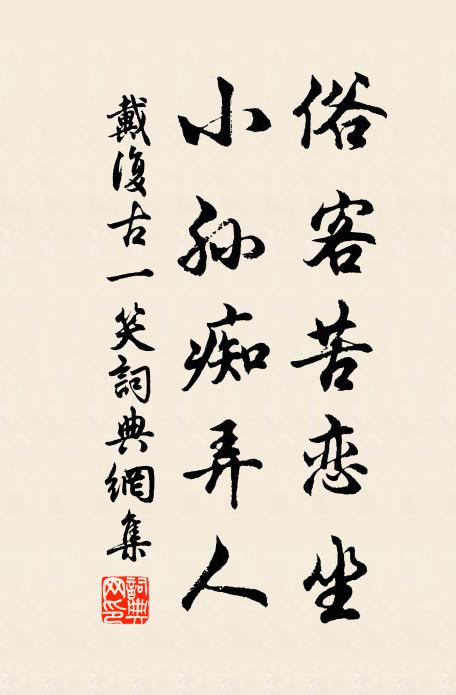 俗客苦恋坐
小孙痴弄人
戴復古一笑詞典網集
詞典網印